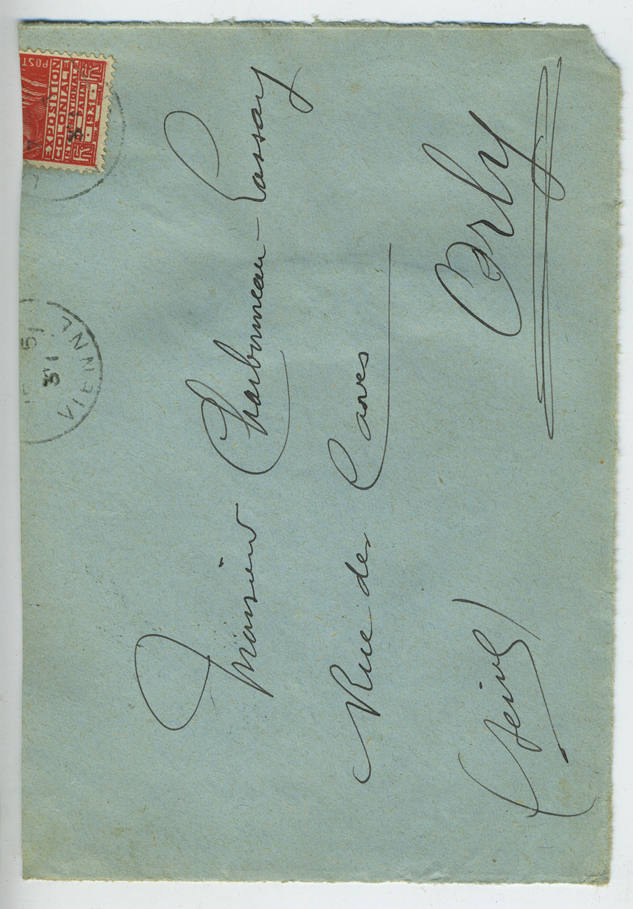 POST
EXPOSITION
COLONIALE
INTERNATIONALE
PARIS
1931
VIENNA
31
Monsieur Charbonneau-Lassay
Rue des Caves
Orly
(Seine)